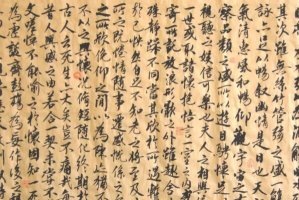 雖無絲竹管弦之盛
詠亦足以暢敘幽情是日也天
氣清惠風和暢仰觀宇宙之
察品類之盛所以遊目騁懷
視聽之娛信可樂也夫人之相與
一世或取諸懷抱悟言一室之內
寄所託放浪形骸之外雖趣舍
殊靜躁不同當其欣於所遇暫
於己怏然自足不知老之將至
所之既惓情隨事遷感慨係之
之俯仰之間以為陳跡猶不
以之興懷況脩短隨化終期於
古人云死生亦大矣豈不痛哉每
興感之由若合一契未嘗不
文嗟悼不能喻之於懷固知一
為虛誕齊彭殤為妄作後之